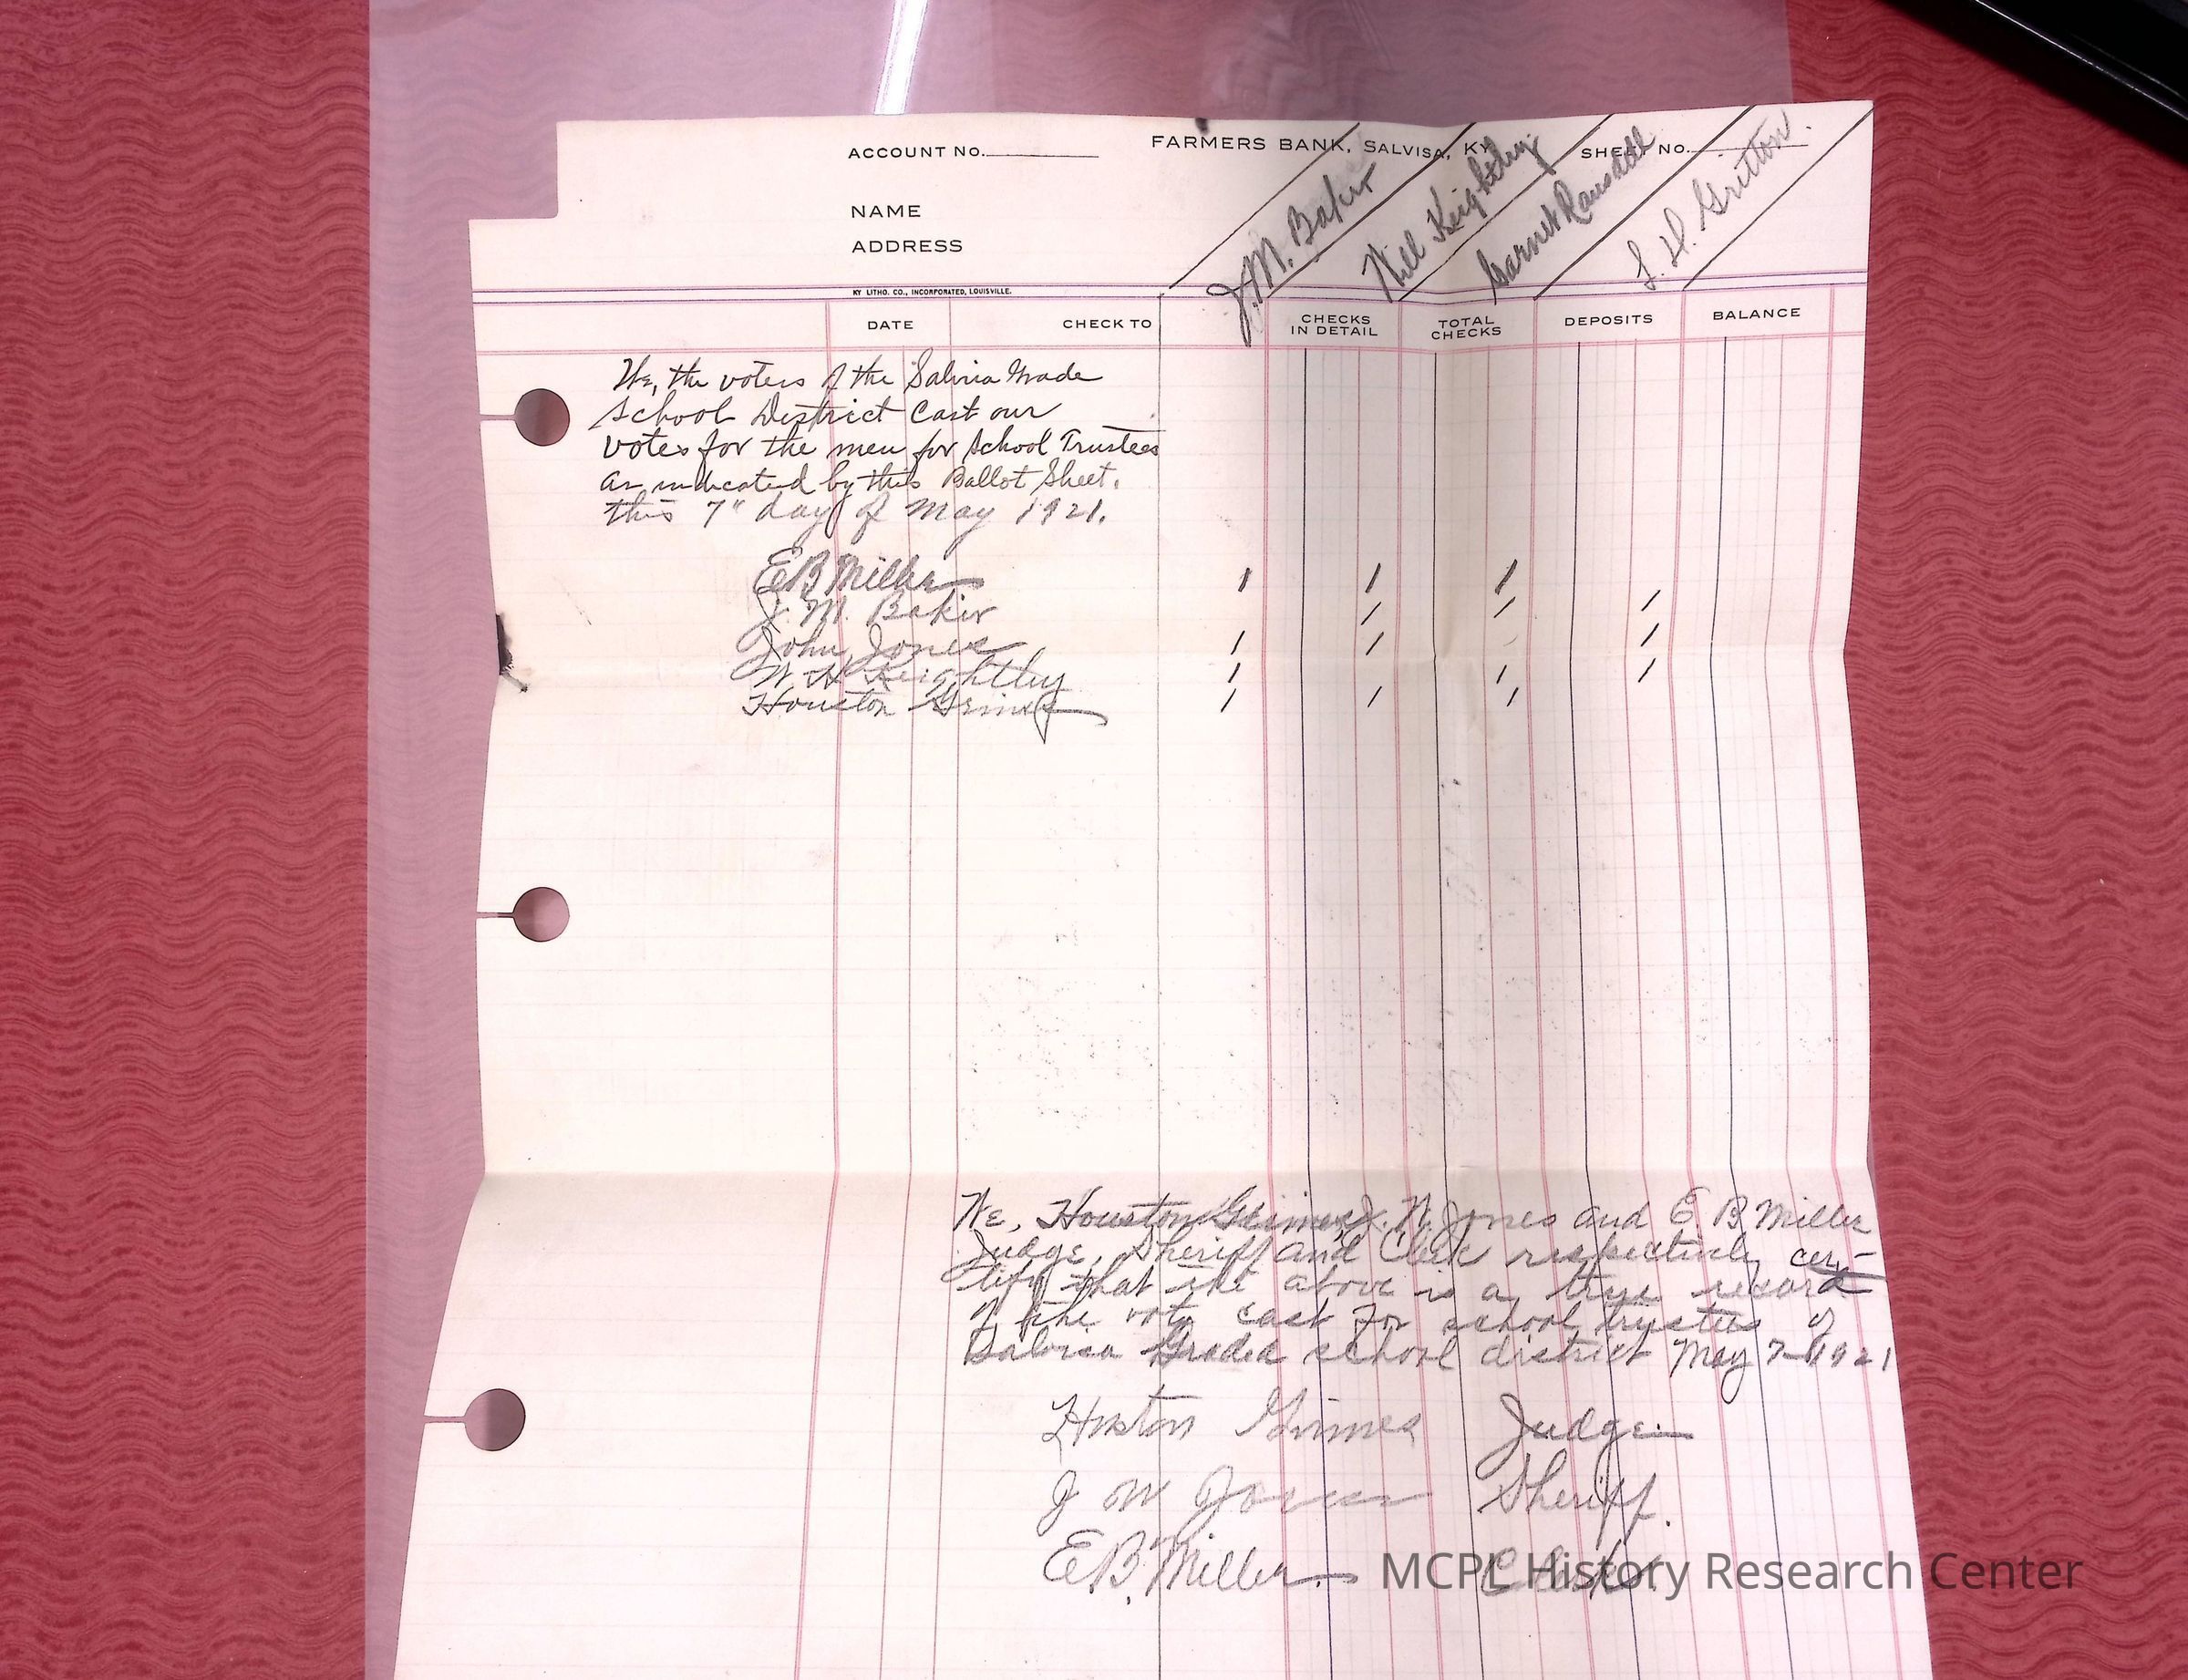 ACCOUNT No. FARMERS BANK, SALVISA, KY. SHEET No.
NAME
ADDRESS
J. M. Baker
Will Keightley
Garnet Ransdell
L. H. Gritton.
KY LITHO. CO., INCORPORATED, LOUISVILLE.
DATE CHECK TO CHECKS IN DETAIL TOTAL CHECKS DEPOSITS BALANCE
We, the voters of the Salvisa Grade
School District Cast our
votes for the men for School Trustees
as indicated by this Ballot Sheet.
this 7" day of May 1921.
E B Miller / / /
J. M. Baker / / /
John Jones / / /
W H Keightley / / /
Houston Grimes / / /
We, Houston Grimes, J. W. Jones and E. B Miller
Judge, Sheriff and Clerk respectively cer-
tify that the above is a true record
of the vote cast for school trustees of
Salvisa Graded school district May 7-1921
Huston Grimes Judge
J W Jones Sheriff.
E B. Miller Clerk
MCPL History Research Center